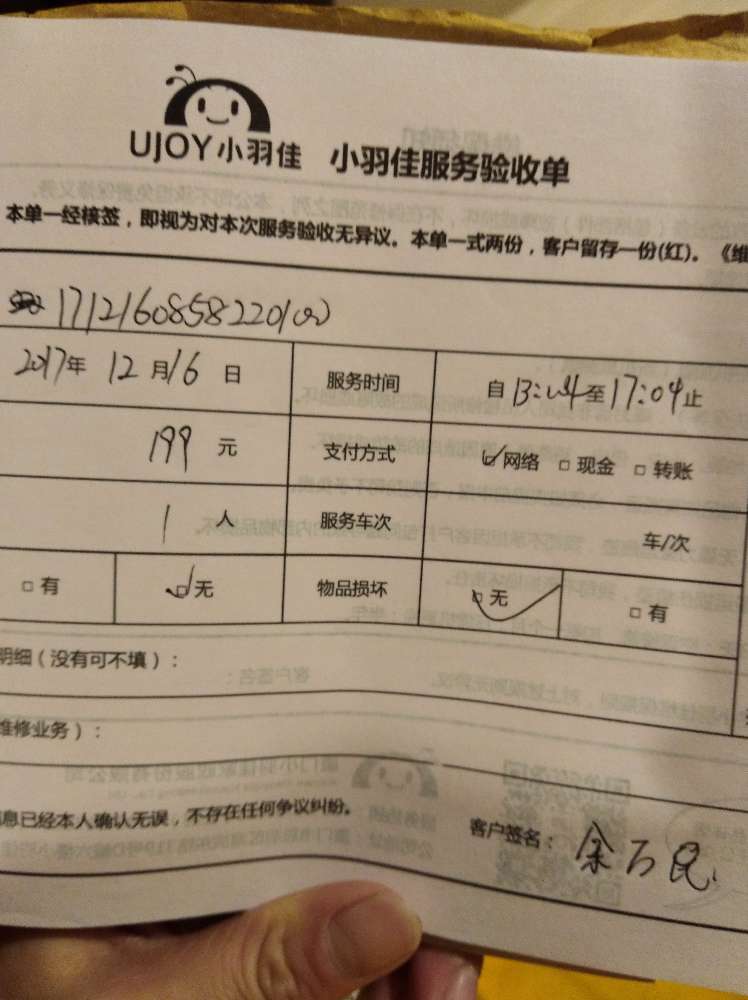 UJOY小羽佳 小羽佳服务验收单
本单一经核签，即视为对本次服务验收无异议。本单一式两份，客户留存一份(红)。《维
1712160858220100
2017年 12月16日 服务时间 自13:04至17:04止
199元 支付方式 ☑网络 □现金 □转账
1人 服务车次 车/次
□有 ☑无 物品损坏 ☑无 □有
明细（没有可不填）：
维修业务）：
息已经本人确认无误，不存在任何争议纠纷。
客户签名：余万民